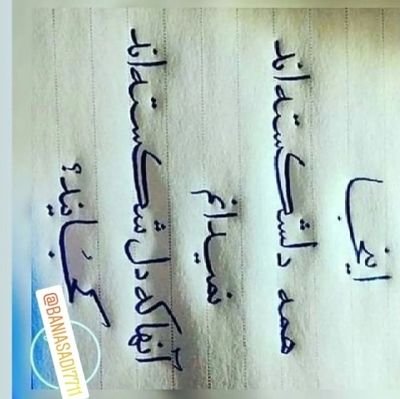 اینجا
همه دلشکسته‌اند
نمیدانم
آنها که دل شکسته‌اند
کجایند؟
@BANIASADI7711